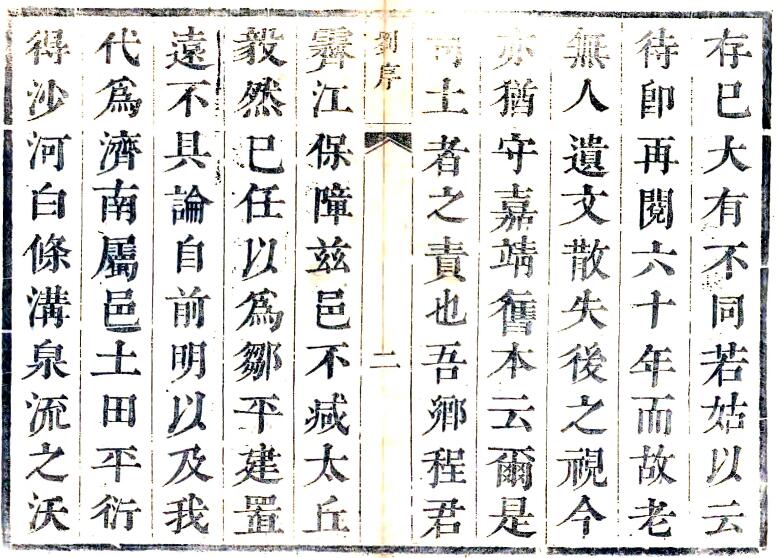 存已大有不同若姑以云
待卽再閱六十年而故老
無人遺文散失後之視今
亦猶守嘉靖舊本云爾是
土者之責也吾鄉程君
序
二
霽江保障兹邑不減太丘
毅然已任以爲鄒平建置
遠不具論自前明以及我
代爲濟南屬邑土田平衍
得沙河白條溝泉流之沃